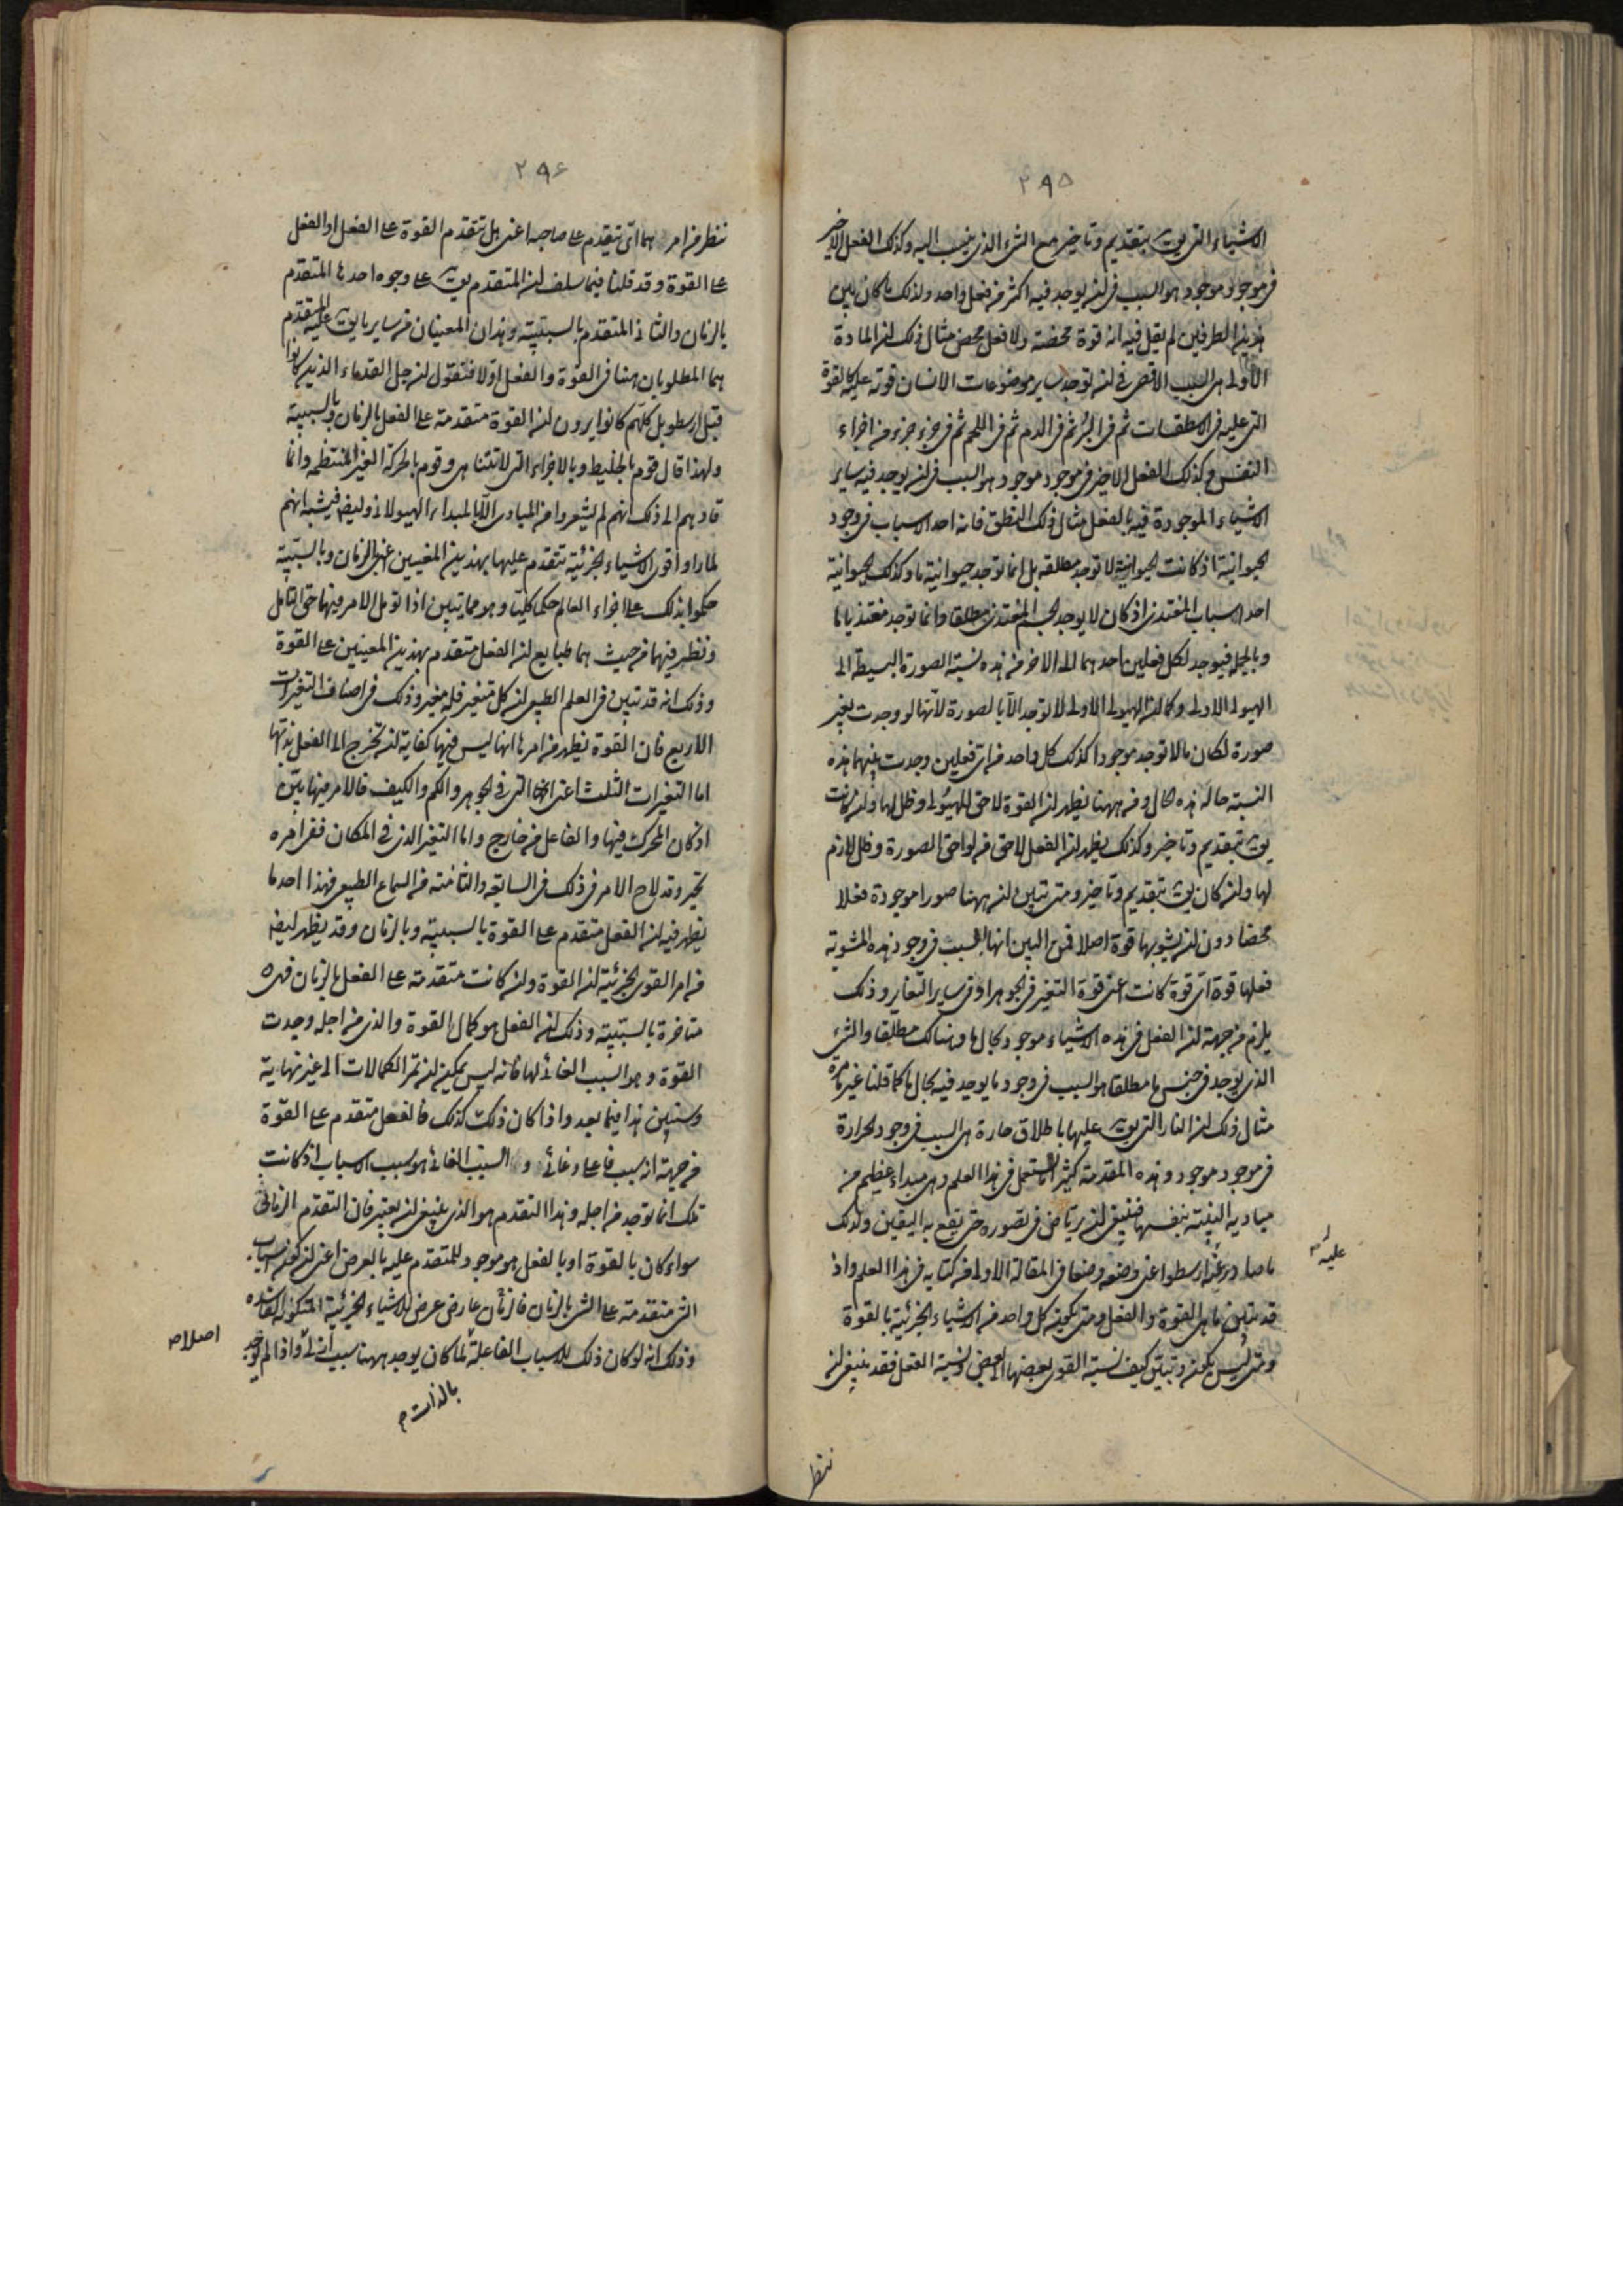 ٢٩٥
الاشياء التى يق بتقديم وتاخير مع الشىء الذى ينسب اليه وكذلك الفعل الاخير
فى موجود موجود هو السبب فى ان يوجد فيه اكثر من فعل واحد ولذلك ما كان بين
هذين الطرفين لم يقل فيه انه قوة محضة ولا فعل محض مثال ذلك ان المادة
الاولى هى السبب الاقصى فى ان توجد ساير موضوعات الانسان قوته عليه كالقوة
التى عليه فى الاسطقسات ثم فى البر ثم فى الدم ثم فى اللحم ثم فى جزء جزء من اجزاء
النفس وكذلك الفعل الاخير فى موجود موجود هو السبب فى ان يوجد فيه ساير
الاشياء الموجودة فيه بالفعل مثال ذلك النطق فانه احد الاسباب فى وجود
الحيوانية اذ كانت الحيوانية لا توجد مطلقه بل انما توجد حيوانية ما وكذلك الحيوانية
احد اسباب المغتذى اذ كان لا يوجد الجسم المغتذى مطلقا وانما توجد مغتذيا ما
وبالجمله فيوجد لكل فعلين احدهما الى الاخر من هذه نسبة الصورة البسيطة الى
الهيولى الاولى وكما ان الهيولى الاولى لا توجد الا بالصورة لانها لو وجدت بغير
صورة لكان ما لا توجد موجودا كذلك كل واحد من اى فعلين وجدت بينهما هذه
النسبة حاله هذه الحال ومن ههنا يظهر ان القوة لاحق الهيولى وظل لها وان كانت
يق بتقديم وتاخير وكذلك يظهر ان الفعل لاحق من لواحق الصورة وظل لازم
لها وان كان يق بتقديم وتاخير ومتى تبين ان ههنا صورا موجودة فعلا
محضا دون ان يشوبها قوة اصلا فمن البين انها السبب فى وجود هذه المشوبة
فعلها قوة اى قوة كانت اعنى قوة التغير فى الجوهر او فى ساير التغاير وذلك
يلزم من جهة ان الفعل فى هذه الاشياء موجود بحال ما وهنالك مطلقا والشىء
الذى يوجد فى جنس ما مطلقا هو السبب فى وجود ما يوجد فيه بحال ما كما قلنا غير ما مرة
مثال ذلك ان النار التى يق عليها باطلاق حارة هى السبب فى وجود الحرارة
فى موجود موجود وهذه المقدمة كثيرا تستعمل فى هذا العلم وهى مبداء عظيم من
مباديه البينة بنفسها فينبغى ان يرتاض فى تصوره حتى يقع به اليقين ولذلك
ما صادر ارسطو اعنى وضعه وضعا فى المقالة الاولى من كتابه فى هذا العلم واذ
عليه م
قد تبين ما هى القوة والفعل ومتى يكون كل واحد من الاشياء الجزئية بالقوة
ومتى ليس يكون وتبين كيف نسبة القوى بعضها الى بعض ونسبة الفعل فقد ينبغى ان
ننظر
٢٩٦
ننظر من امرهما اى يتقدم على صاحبه اعنى هل تتقدم القوة على الفعل او الفعل
على القوة وقد قلنا فيما سلف ان المتقدم يق على وجوه احدها المتقدم
بالزمان والثانى المتقدم بالسببية وهذان المعنيان من ساير ما يق عليه المتقدم
هما المطلوبان ههنا فى القوة والفعل اولا فنقول ان جل القدماء الذين كانوا
قبل ارسطو بل كلهم كانوا يرون ان القوة متقدمة على الفعل بالزمان وبالسببية
ولهذا قال قوم بالخليط وبالاجزاء التى لا تتناهى وقوم بالحركة الغير المنتظمه وانما
قادهم الى ذلك انهم لم يشعروا من المبادى الا بالمبداء الهيولانى وايضا فيشبه انهم
لما راوا قوى الاشياء الجزئية تتقدم عليها بهذين المعنيين اعنى بالزمان وبالسببية
حكموا بذلك على اجزاء العالم حكما كليا وهو مما يتبين اذا تؤمل الامر فيها حق التامل
ونظر فيهما من حيث هما طبايع ان الفعل متقدم بهذين المعنيين على القوة
وذلك انه قد تبين فى العلم الطبيعى ان كل متغير فله مغير وذلك فى اصناف التغيرات
الاربع فان القوة يظهر من امرها انها ليس فيها كفاية ان تخرج الى الفعل بذاتها
اما التغيرات الثلث اعنى التى فى الجوهر والكم والكيف فالامر فيها بين
اذ كان المحرك فيها والفاعل من خارج واما التغير الذى فى المكان ففى امره
تحير وقد لاح الامر فى ذلك فى السابعه والثامنه من السماع الطبيعى فهذا احد ما
يظهر فيه ان الفعل متقدم على القوة بالسببية وبالزمان وقد يظهر ايضا
من امر القوى الجزئية ان القوة وان كانت متقدمة على الفعل بالزمان فهى
متاخرة بالسببية وذلك ان الفعل هو كمال القوة والذى من اجله وجدت
القوة وهو السبب الغائى لها فانه ليس يمكن ان تمر الكمالات الى غير نهاية
وسنبين هذا فيما بعد واذا كان ذلك كذلك فالفعل متقدم على القوة
من جهة انه سبب فاعل وغائى والسبب الغائى هو سبب الاسباب اذ كانت
تلك انما توجد من اجله وهذا التقدم هو الذى ينبغى ان يعتبر فان التقدم الزمانى
سواء كان بالقوة او بالفعل هو موجود للمتقدم عليه بالعرض اعنى ان كون اسباب
الشىء متقدمة على الشىء بالزمان عارض عرض للاشياء الجزئية المتكونة الفاسده
وذلك انه لو كان ذلك للاسباب الفاعلة لما كان يوجد ههنا سبب ازلى واذا لم يوجد
اصلا م
بالذات م